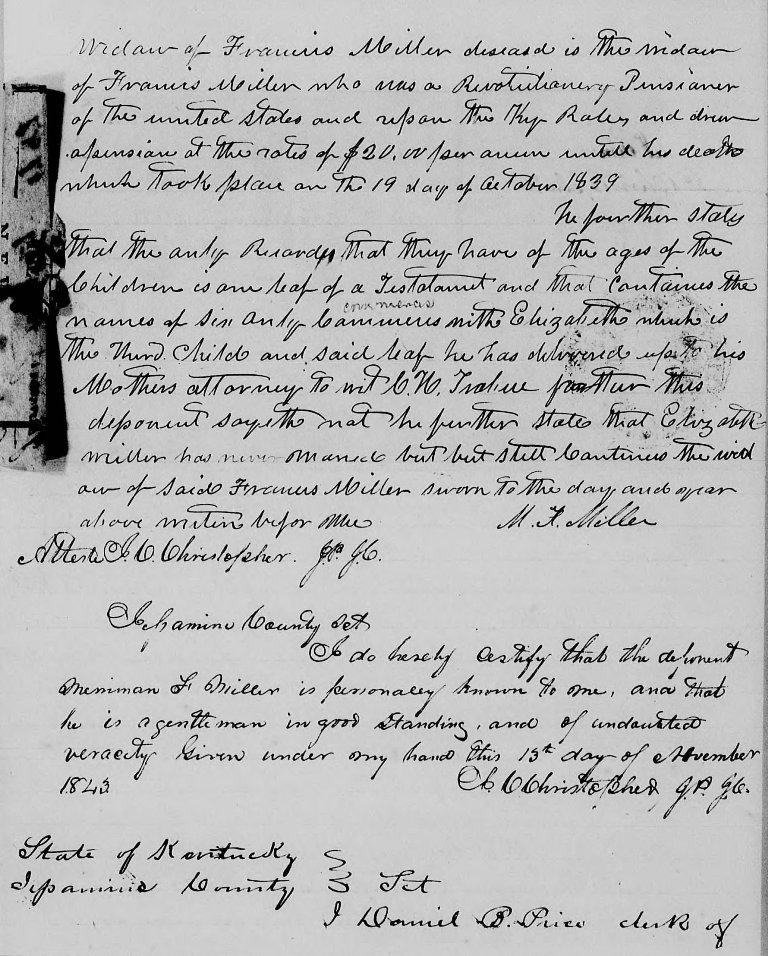 Widaw of Francis Miller deseasd is the widaw
of Francis Miller who was a Revolutianery Pensianer
of the united states and upan the Ky Roles and drew
a pensian at the rates of $20.00 per anum untill his death
which took place on the 19 day of October 1839
he further states
that the anly Recards that they have of the ages of the
Children is one leaf of a Testatament and that Contains the
names of Six Anly Commens with Elizabeth which is
commences
the third Child and said leaf he has delivered up to his
Mothers attorney to wit C.H. further this
deponent sayeth not he further states that Elizabeth
Miller has never maried but but still Cantinues the wid
ow of said Francis Miller sworn to the day and year
above writen befor me M. F. Miller
Atteste J. C. Christopher. J.P. J.C.
Jessamine County Sct
I do hereby certify that the deponent
Merriman F Miller is personaley known to me, and that
he is a gentleman in good standing, and of undoubted
veracity Given under my hand this 13th day of November
1843 J. C Christopher, J.P. J.C.
State of Kentucky
Jessamine County Sct
I Daniel B. Price clerk of